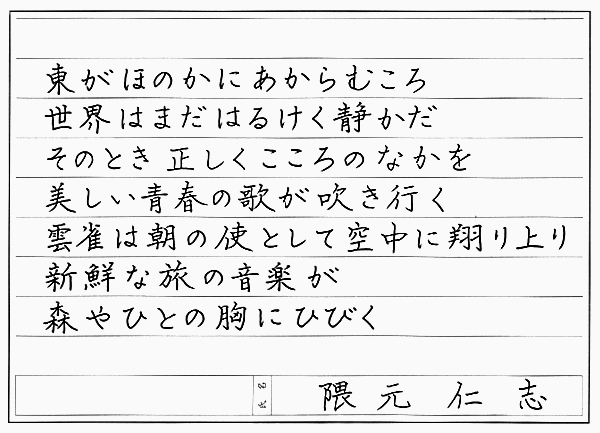 東がほのかにあからむころ
世界はまだはるけく静かだ
そのとき 正しくこころのなかを
美しい青春の歌が吹き行く
雲雀は朝の使として空中に翔り上り
新鮮な旅の音楽が
森やひとの胸にひびく
氏名
隈元仁志